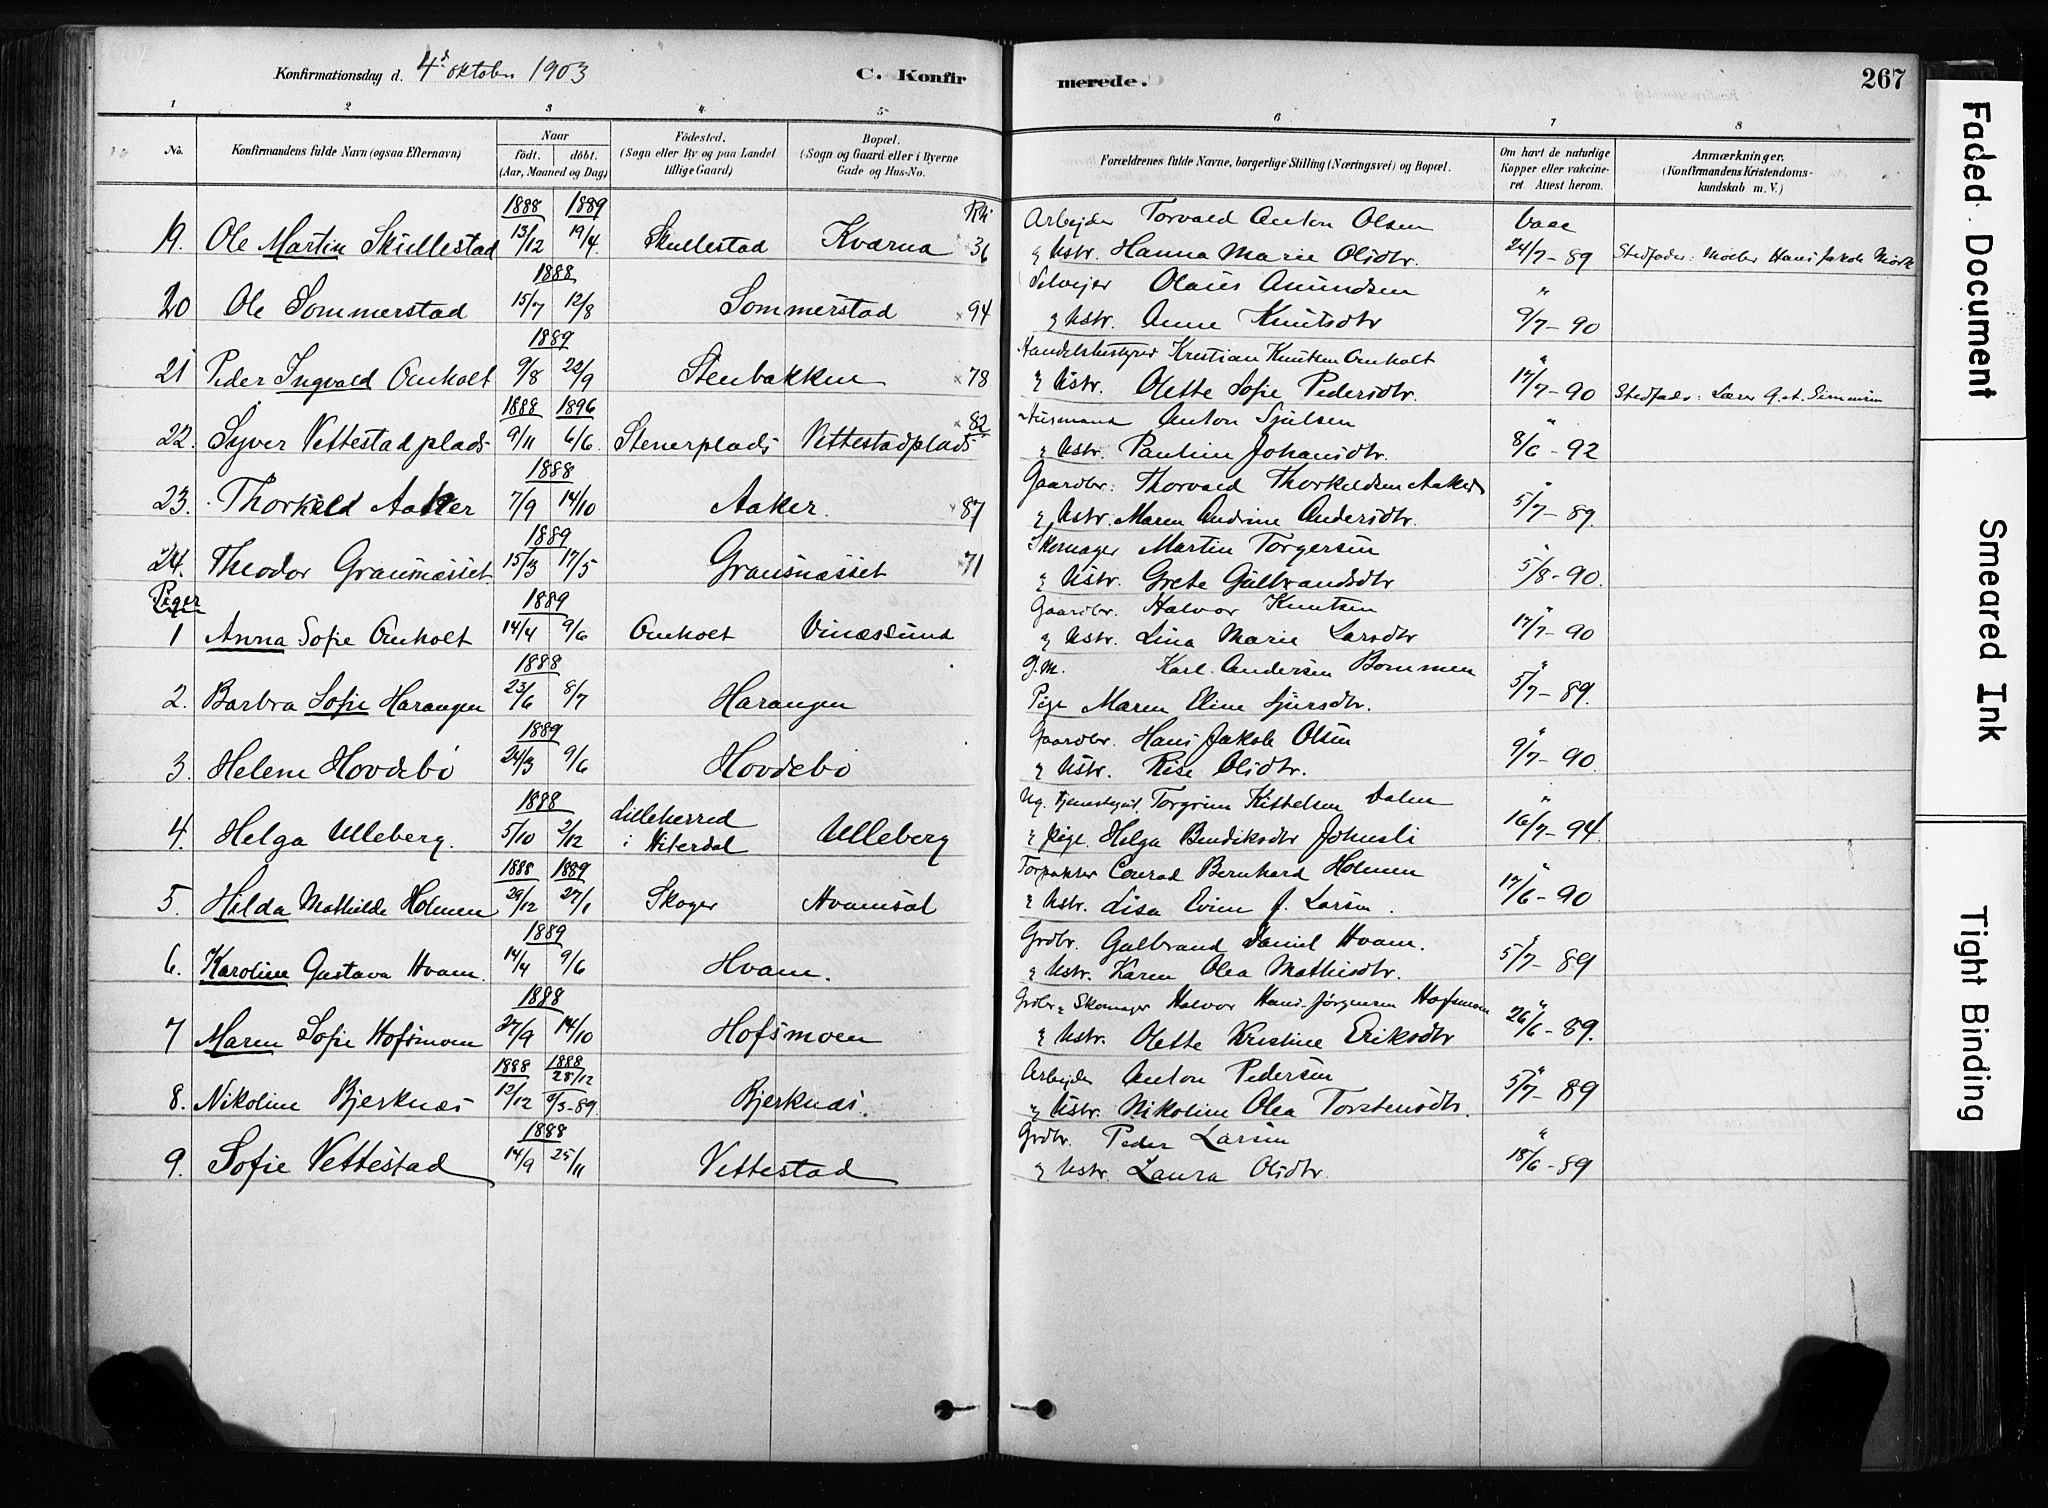 Konfirmationsdag d. 4de oktober 1903
C. Konfir
merede.
267
1 2 3 4. 5 6 7 8
No.
Konfirmandens fulde Navn (ogsaa Efternavn)
Naar
födt. döbt.
(Aar, Maaned og Dag)
Födested.
(Sogn eller By og paa Landet
tillige Gaard)
Bopæl.
(Sogn og Gaard eller i Byerne
Gade og Hus-No.
Forældrenes fulde Navne, borgerlige Stilling (Næringsvei) og Bopæl.
Om havt de naturlige
Kopper eller vakcine-
ret. Attest herom.
Anmærkninger.
(Konfirmandens Kristendoms-
kundskab m. V.)
1888 1889
19. Ole Martin Skullestad 13/12 19/4. Skullestad Kvarna 36
Arbejder Torvald Anton Olsen Vacc
& Hstr. Hanna Marie Olsdtr. 24/7-89 Stedfader: Møller Hans Jakob Mörk
1888
20 Ole Sommerstad 15/7 12/8 Sommerstad ×94
Selvejer Olaus Amundsen "
& Hstr. Anne Knutsdtr 9/7-90
1889
21 Peder Ingvald Omholt 9/8 22/9 Stenbakken ×78
Handelsbestyrer Kristian Knutsen Omholt "
& Hstr. Olette Sofie Pedersdtr. 17/7-90 Stedfader: Lærer
1888 1896
22. Syver Vettestadplads 9/11 6/6 Stenerplads Vettestadplads ×82
Husmand Anton Sjulsen "
& Hstr. Pauline Johansdtr. 8/6-92
1888
23. Thorkild Aaker 7/9 14/10 Aaker. ×87
Gaardbr. Thorvald Thorkildsen Aaker "
& Hstr. Maren Andrine Andersdtr. 5/7-89.
1889
24. Theodor Gransnæsset. 15/3 17/5 Gransnæsset ×71
Skomager Martin Torgersen "
& Hstr. Grete Gulbrandsdtr 5/8-90.
Piger
1889
1 Anna Sofie Omholt 14/4 9/6 Omholt Vinæssund
Gaardbr. Halvor Knutsen "
& Hstr. Lina Marie Larsdtr 17/7-90
1888
2. Barbra Sofie Harangen 23/6 8/7 Harangen
g.M. Karl Andersen Bommen "
Pige Maren Eline Sjursdtr. 5/7-89.
1889
3. Helene Hovdebö 24/3 9/6 Hovdebö
Gaardbr. Hans Jakob Olsen "
& Hstr. Rise Olsdtr. 9/7-90.
1888
4. Helga Ulleberg. 5/10 2/12 Lilleherred
i Hiterdal Ulleberg
Ug. Torgrim Kittelsen Dalen "
& pige. Helga Bendiksdtr Johnsli 16/7-94.
1888 1889
5. Hilda Mathilde Holmen 29/12 27/1 Skoger Hvamsal
Conrad Bernhard Holmen "
& Hstr. Lisa Evine f. Larsen. 17/6-90
1889
6. Karoline Gustava Hvam. 14/4 9/6 Hvam.
Grdbr. Gulbrand Daniel Hvam. "
& Hstr. Karen Olea Mathisdtr. 5/7-89
1888
7 Maren Sofie Hofsmoen 27/9 14/10 Hofsmoen
Grdbr & Skomager Halvor Hans-Jørgensen Hofsmoen "
& Hstr. Olette Kristine Eriksdtr 26/6-89.
1888 1888
28/12
8. Nikoline Bjerknæs 13/12 3/3-89 Bjerknæs.
Arbejder Anton Pedersen "
& Hstr. Nikoline Olea Torstensdtr. 5/7-89
1888
9. Sofie Vettestad 14/9 25/11 Vettestad
Grdbr. Peder Larsen "
& Hstr. Laura Olsdtr. 18/6-89
Faded Document
Smeared Ink
Tight Binding